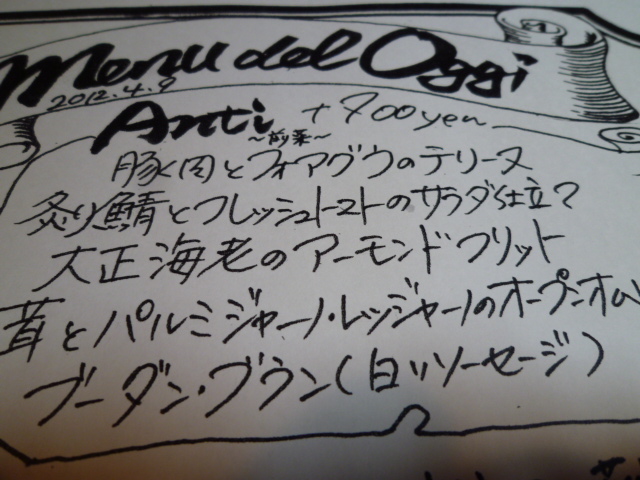 Menu del Oggi
2012.4.9
Anti +900yen
~前菜~
豚肉とフォアグラのテリーヌ
炙り鯖とフレッシュトマトのサラダ仕立て
大正海老のアーモンドフリット
茸とパルミジャーノ・レッジャーノのオープンオム
ブーダン・ブラン(白いソーセージ)